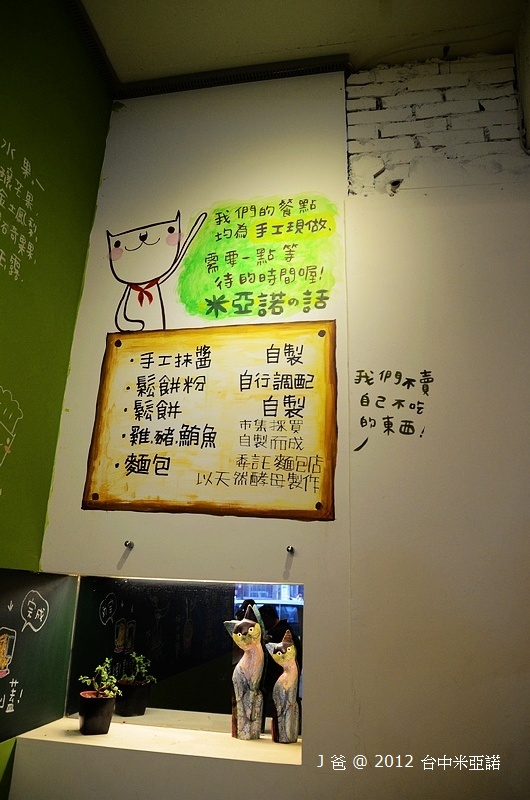 我們的餐點
均為手工現做.
需要一點等
待的時間喔!
米亞諾の話
・手工抹醬 自製
・鬆餅粉 自行調配
・鬆餅 自製
・雞.豬.鮪魚 市集採買 自製而成
・麵包 委託麵包店 以天然酵母製作
我們不賣
自己不吃
的東西!
水果
完成
J 爸 @ 2012 台中米亞諾